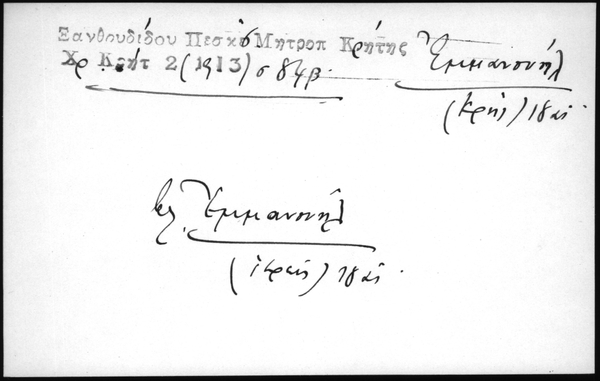 Ξανθουδίδου Πεσκέσ Μητροπ Κρήτης
Χρ Κρήτ 2 (1913) σ 84β.
Ἐμμανουήλ
(ἱερεὺς) 18 αἰ.
βλ. Ἐμμανουήλ
(ἱερεὺς) 18 αἰ.